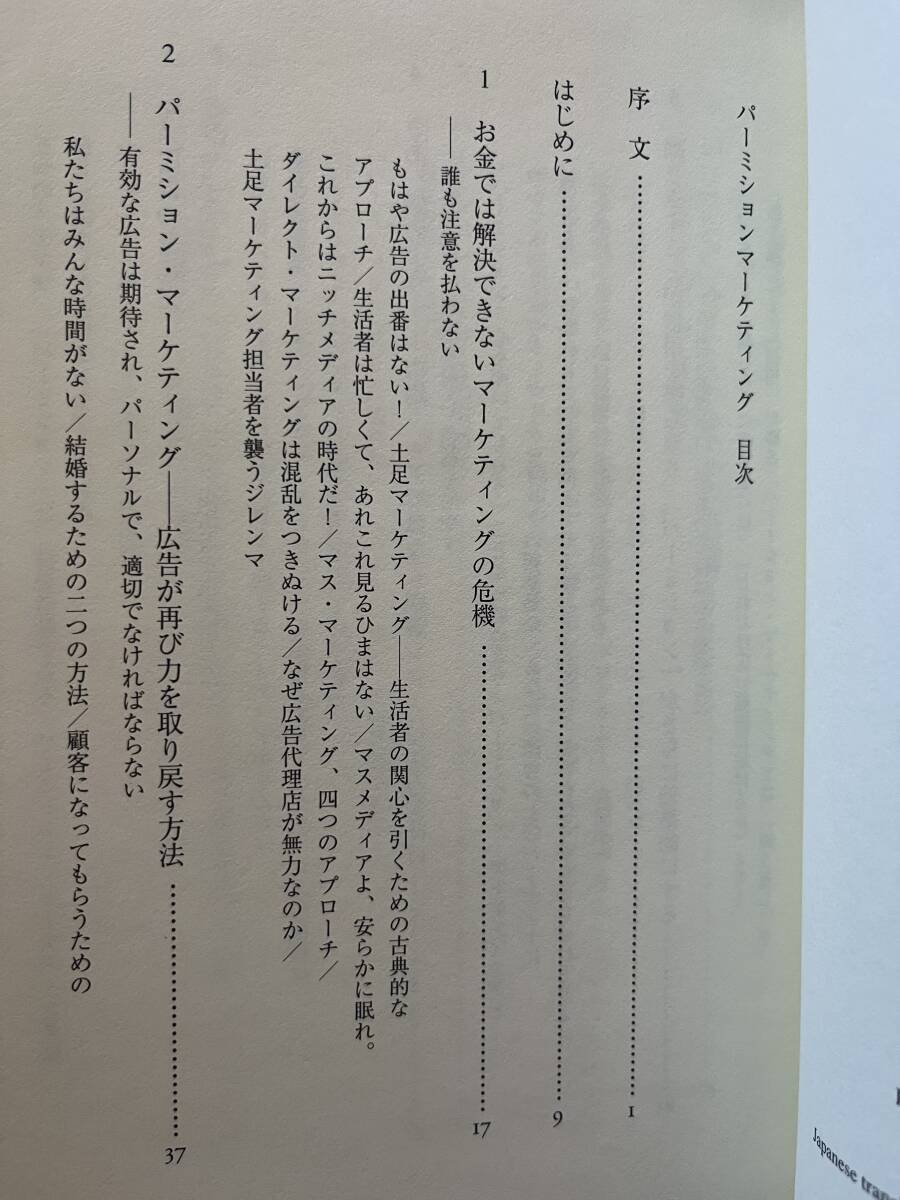 パーミションマーケティング　目次
序　文 …… 1
はじめに …… 9
1　お金では解決できないマーケティングの危機 …… 17
――誰も注意を払わない
もはや広告の出番はない！／土足マーケティング――生活者の関心を引くための古典的な
アプローチ／生活者は忙しくて、あれこれ見るひまはない／マスメディアよ、安らかに眠れ。
これからはニッチメディアの時代だ！／マス・マーケティング、四つのアプローチ／
ダイレクト・マーケティングは混乱をつきぬける／なぜ広告代理店が無力なのか／
土足マーケティング担当者を襲うジレンマ
2　パーミション・マーケティング――広告が再び力を取り戻す方法 …… 37
――有効な広告は期待され、パーソナルで、適切でなければならない
私たちはみんな時間がない／結婚するための二つの方法／顧客になってもらうための
Japanese